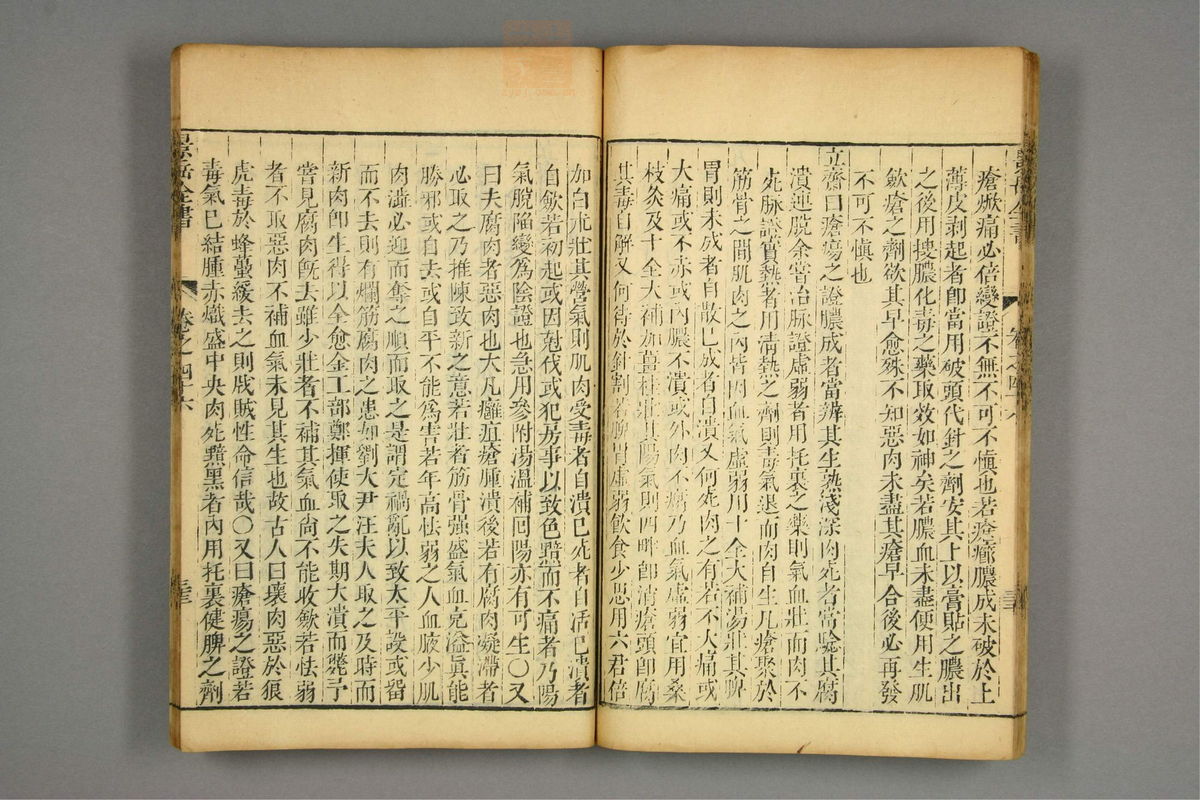 瘡㷔痛必倍變證不無不可不慎也若瘡癤膿成未破於上
薄皮剥起者卽當用破頭代針之劑安其上以膏貼之膿出
之後用搜膿化毒之藥取效如神矣若膿血未盡便用生肌
歛瘡之劑欲其早愈殊不知惡肉未盡其瘡早合後必再發
不可不慎也
立齋曰瘡瘍之證膿成者當辨其生熟淺深肉死者當驗其腐
潰連脫余嘗治脉證虛弱者用托裏之藥則氣血壯而肉不
死脉證實熱者用清熱之劑則毒氣退而肉自生凡瘡聚於
筋骨之間肌肉之內皆因血氣虛弱用十全大補湯壯其脾
胃則未成者自散已成者自潰又何死肉之有若不大痛或
大痛或不赤或內膿不潰或外肉不腐乃血氣虛弱宜用桑
枝灸及十全大補加薑桂壯其陽氣則四畔卽消瘡頭卽腐
其毒自解又何待於針割若脾胃虛弱飲食少思用六君倍
加白朮壯其營氣則肌肉受毒者自潰已死者自活已潰者
自歛若初起或因尅伐或犯房事以致色黯而不痛者乃陽
氣脫陷變為陰證也急用參附湯溫補囘陽亦有可生〇又
曰夫腐肉者惡肉也大凡癰疽瘡腫潰後若有腐肉凝滯者
必取之乃推陳致新之意若壯者筋骨强盛氣血充溢眞能
勝邪或自去或自平不能為害若年高怯弱之人血脉少肌
肉濇必迎而奪之順而取之是謂定禍亂以致太平設或畱
而不去則有爛筋腐肉之患如劉大尹汪夫人取之及時而
新肉卽生得以全愈金工部鄭揮使取之失期大潰而斃予
嘗見腐肉旣去雖少壯者不補其氣血尙不能收歛若怯弱
者不取惡肉不補血氣未見其生也故古人曰壞肉惡於狼
虎毒於蜂蠆緩去之則戕賊性命信哉〇又曰瘡瘍之證若
毒氣已結腫赤熾盛中央肉死黯黑者內用托裏健脾之劑
景岳全書
卷之四十六
三十三